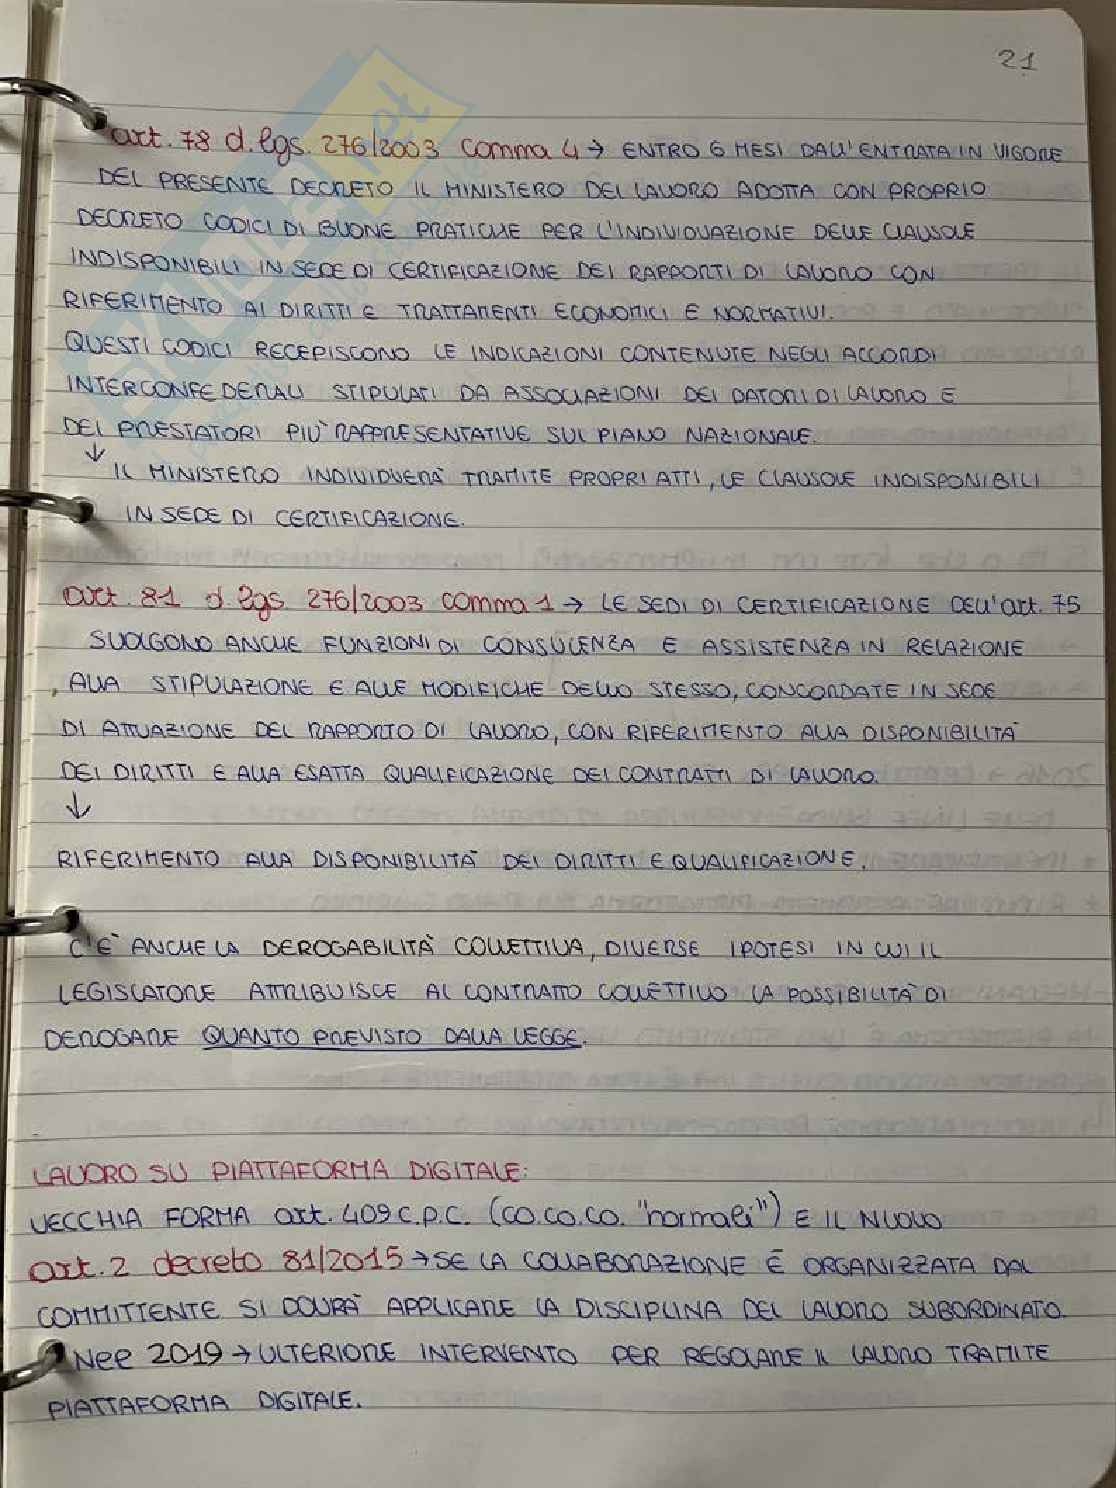 21
art. 78 d.lgs. 276/2003 comma 4 → ENTRO 6 MESI DALL'ENTRATA IN VIGORE
DEL PRESENTE DECRETO IL MINISTERO DEL LAVORO ADOTTA CON PROPRIO
DECRETO CODICI DI BUONE PRATICHE PER L'INDIVIDUAZIONE DELLE CLAUSOLE
INDISPONIBILI IN SEDE DI CERTIFICAZIONE DEI RAPPORTI DI LAVORO CON
RIFERIMENTO AI DIRITTI E TRATTAMENTI ECONOMICI E NORMATIVI.
QUESTI CODICI RECEPISCONO LE INDICAZIONI CONTENUTE NEGLI ACCORDI
INTERCONFEDERALI STIPULATI DA ASSOCIAZIONI DEI DATORI DI LAVORO E
DEI PRESTATORI PIÙ RAPPRESENTATIVE SUL PIANO NAZIONALE.
↓ IL MINISTERO INDIVIDUERÀ TRAMITE PROPRI ATTI, LE CLAUSOLE INDISPONIBILI
IN SEDE DI CERTIFICAZIONE.
art. 81 d.lgs 276/2003 comma 1 → LE SEDI DI CERTIFICAZIONE DELL'art. 75
SVOLGONO ANCHE FUNZIONI DI CONSULENZA E ASSISTENZA IN RELAZIONE
ALLA STIPULAZIONE E ALLE MODIFICHE DELLO STESSO, CONCORDATE IN SEDE
DI ATTUAZIONE DEL RAPPORTO DI LAVORO, CON RIFERIMENTO ALLA DISPONIBILITÀ
DEI DIRITTI E ALLA ESATTA QUALIFICAZIONE DEI CONTRATTI DI LAVORO.
↓
RIFERIMENTO ALLA DISPONIBILITÀ DEI DIRITTI E QUALIFICAZIONE.
C'È ANCHE LA DEROGABILITÀ COLLETTIVA, DIVERSE IPOTESI IN CUI IL
LEGISLATORE ATTRIBUISCE AL CONTRATTO COLLETTIVO LA POSSIBILITÀ DI
DEROGARE QUANTO PREVISTO DALLA LEGGE.
LAVORO SU PIATTAFORMA DIGITALE:
VECCHIA FORMA art. 409 C.P.C. (CO.CO.CO. "normali") E IL NUOVO
art. 2 decreto 81/2015 → SE LA COLLABORAZIONE È ORGANIZZATA DAL
COMMITTENTE SI DOVRÀ APPLICARE LA DISCIPLINA DEL LAVORO SUBORDINATO.
Nel 2019 → ULTERIORE INTERVENTO PER REGOLARE IL LAVORO TRAMITE
PIATTAFORMA DIGITALE.